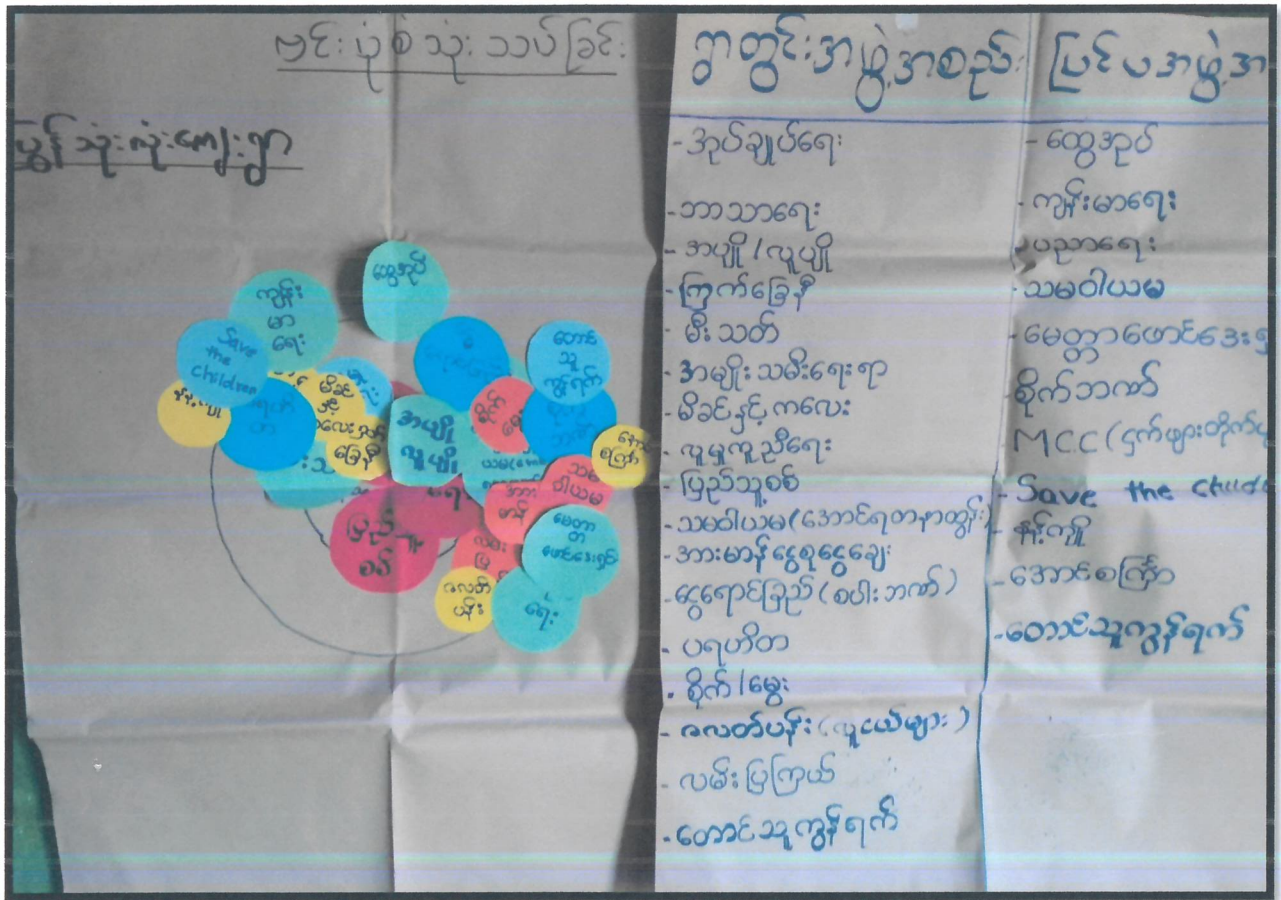 ဗင်းပုံစံသုံးသပ်ခြင်း
မြွန်သုံးလုံးကျေးရွာ
ထွေအုပ်
ကျန်း
မာ
ရေး
Save
the
children
တောင်
သူ
ကွန်ရက်
မိခင်
နှင့်
အပျို
လူပျို
စိုက်
ပြည်သူ့
စစ်
သမ
ဝါယမ
မေတ္တာ
ဖောင်ဒေးရှင်း
ဇလတ်
ပန်း
ရေး
ရွာတွင်းအဖွဲ့အစည်း
- အုပ်ချုပ်ရေး
- ဘာသာရေး
- အပျို/လူပျို
- ကြွက်ခြေနီ
- မီးသတ်
- အမျိုးသမီးရေးရာ
- မိခင်နှင့်ကလေး
- လူမှုကူညီရေး
- ပြည်သူ့စစ်
- သမဝါယမ(အောင်ရတနာထွန်း)
- အားမာန်ငွေစုငွေချေး
- ငွေရောင်ခြည်(စပါးဘဏ်)
- ပရဟိတ
- စိုက်/မွေး
- ဇလတ်ပန်း(လူငယ်များ)
- လမ်းပြကြယ်
- တောင်သူကွန်ရက်
ပြင်ပအဖွဲ့အ
- ထွေအုပ်
- ကျန်းမာရေး
- ပညာရေး
- သမဝါယမ
- မေတ္တာဖောင်ဒေးရှ
စိုက်ဘဏ်
MCC(ငှက်ဖျားတိုက်
- Save the Child
- နန့်ကျို
- အောင်စကြာ
- တောင်သူကွန်ရက်